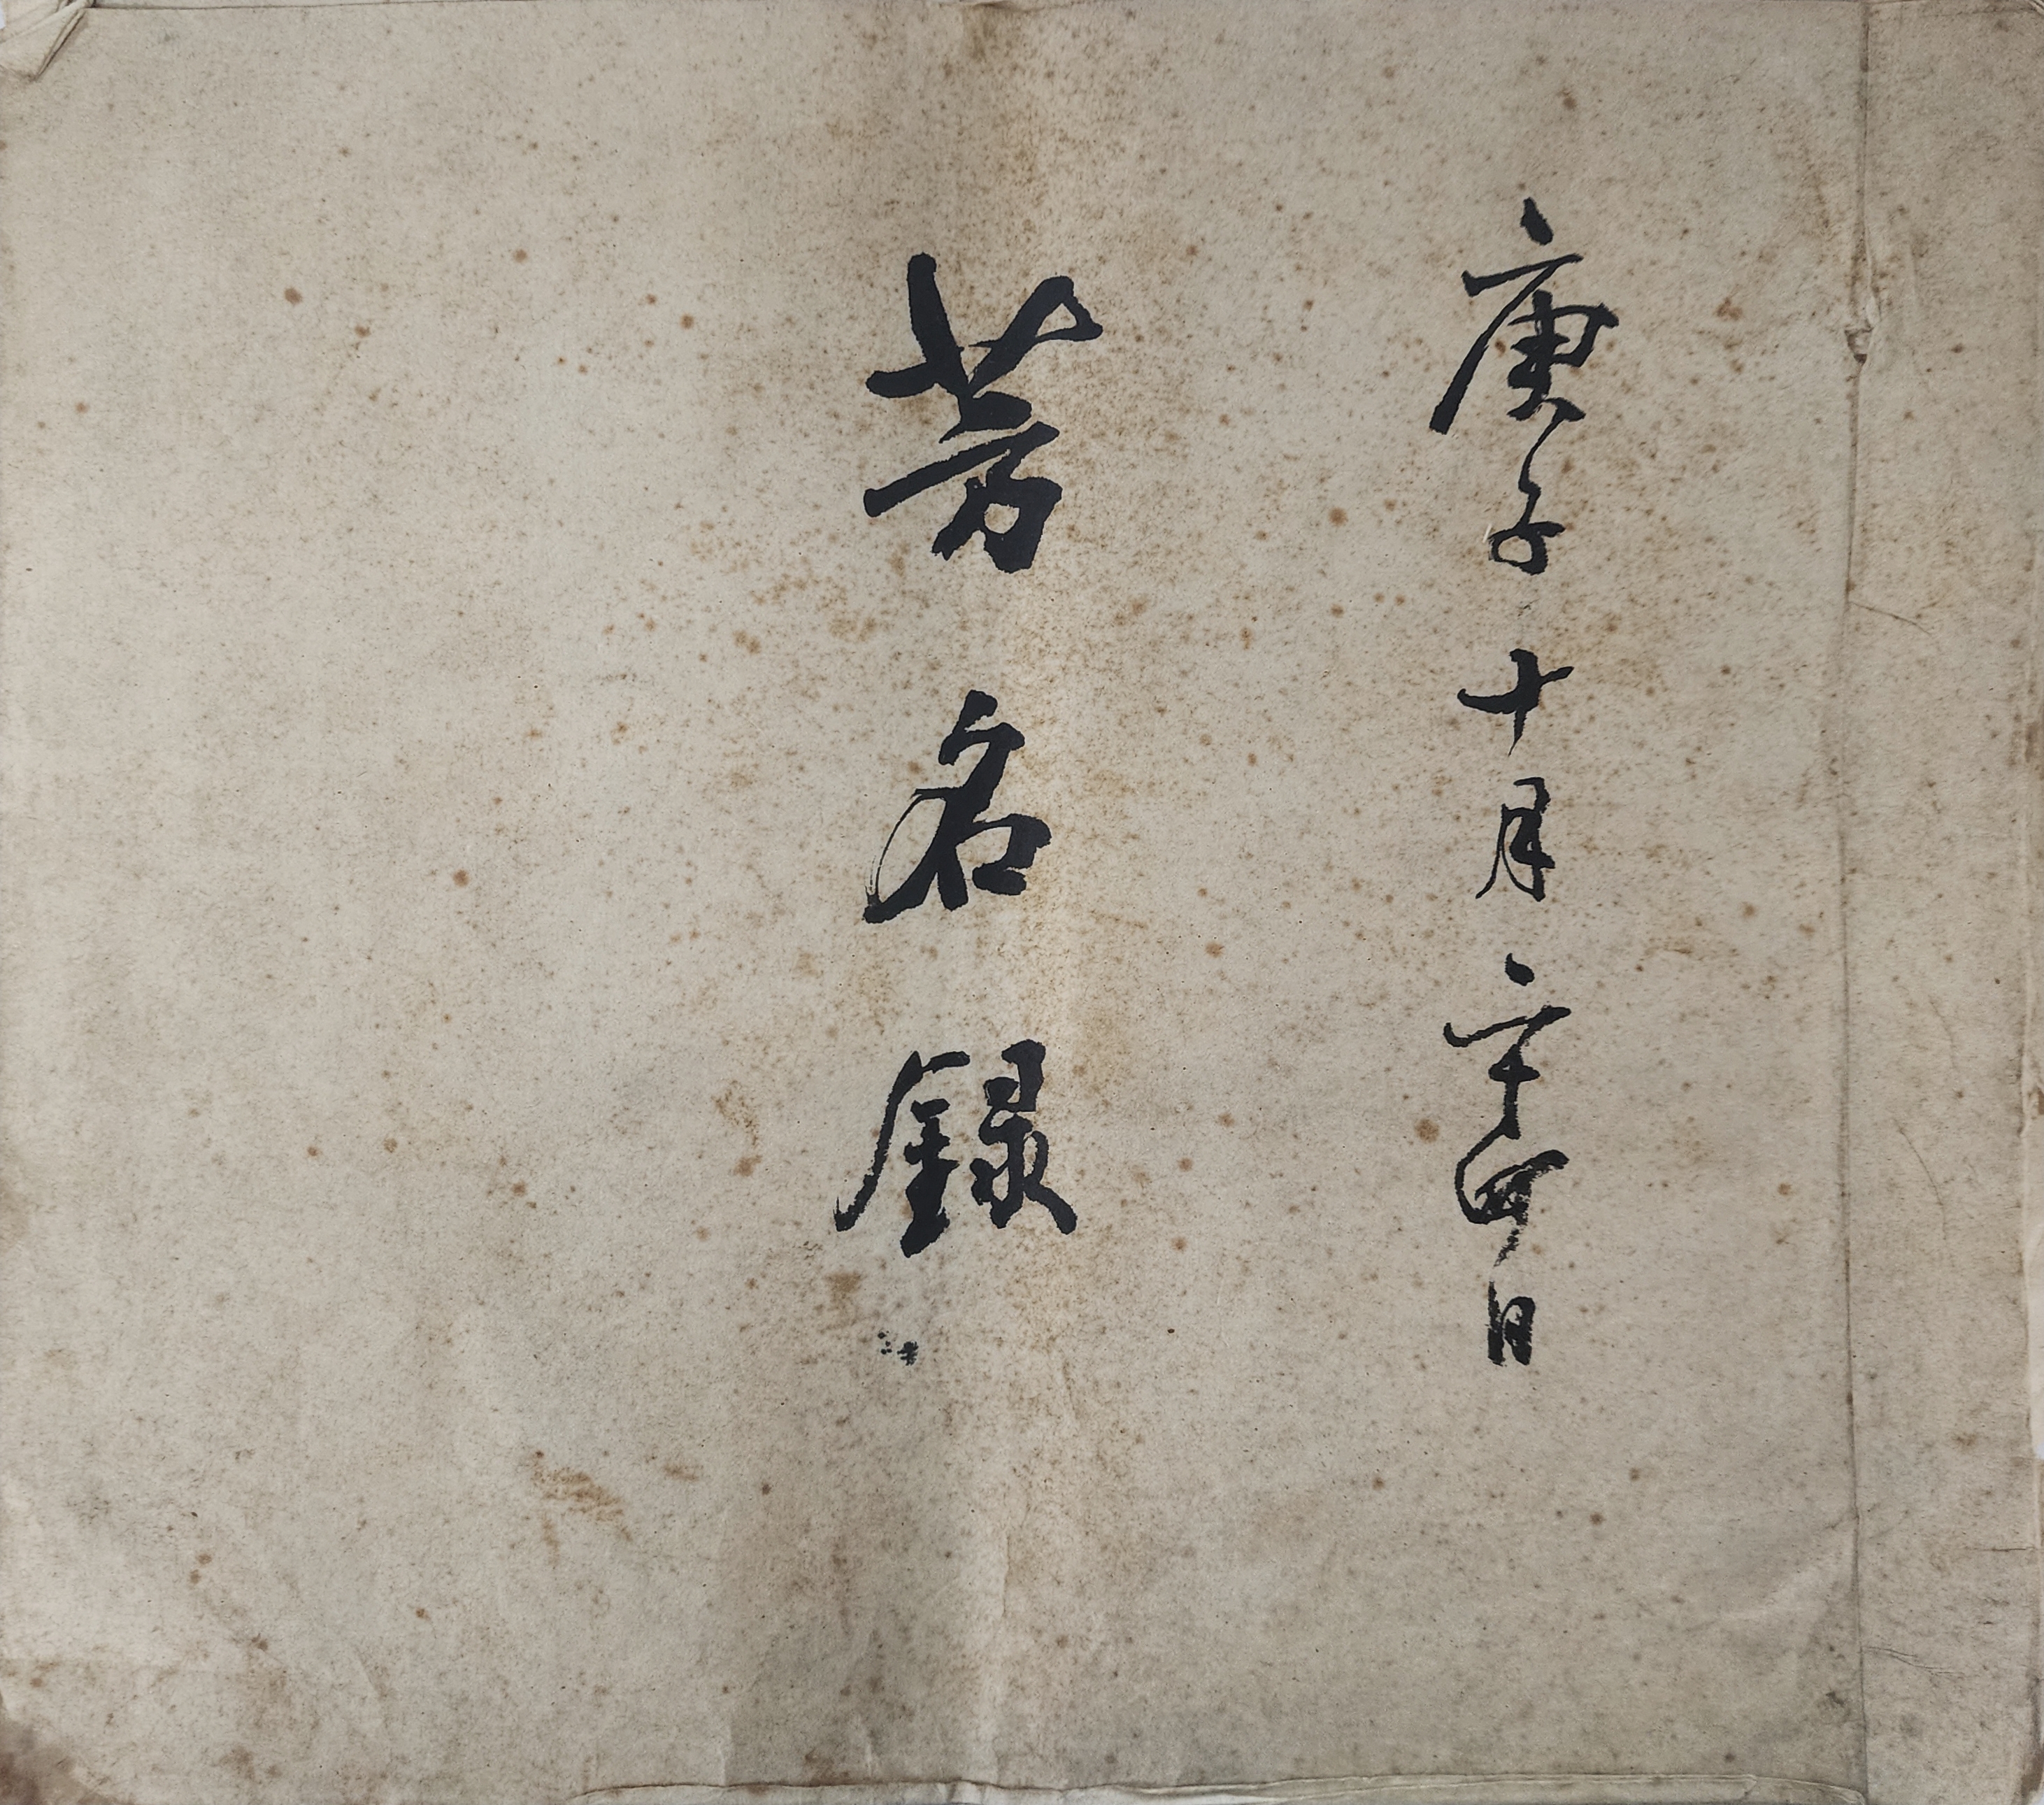 庚子十月二十四日
芳名録